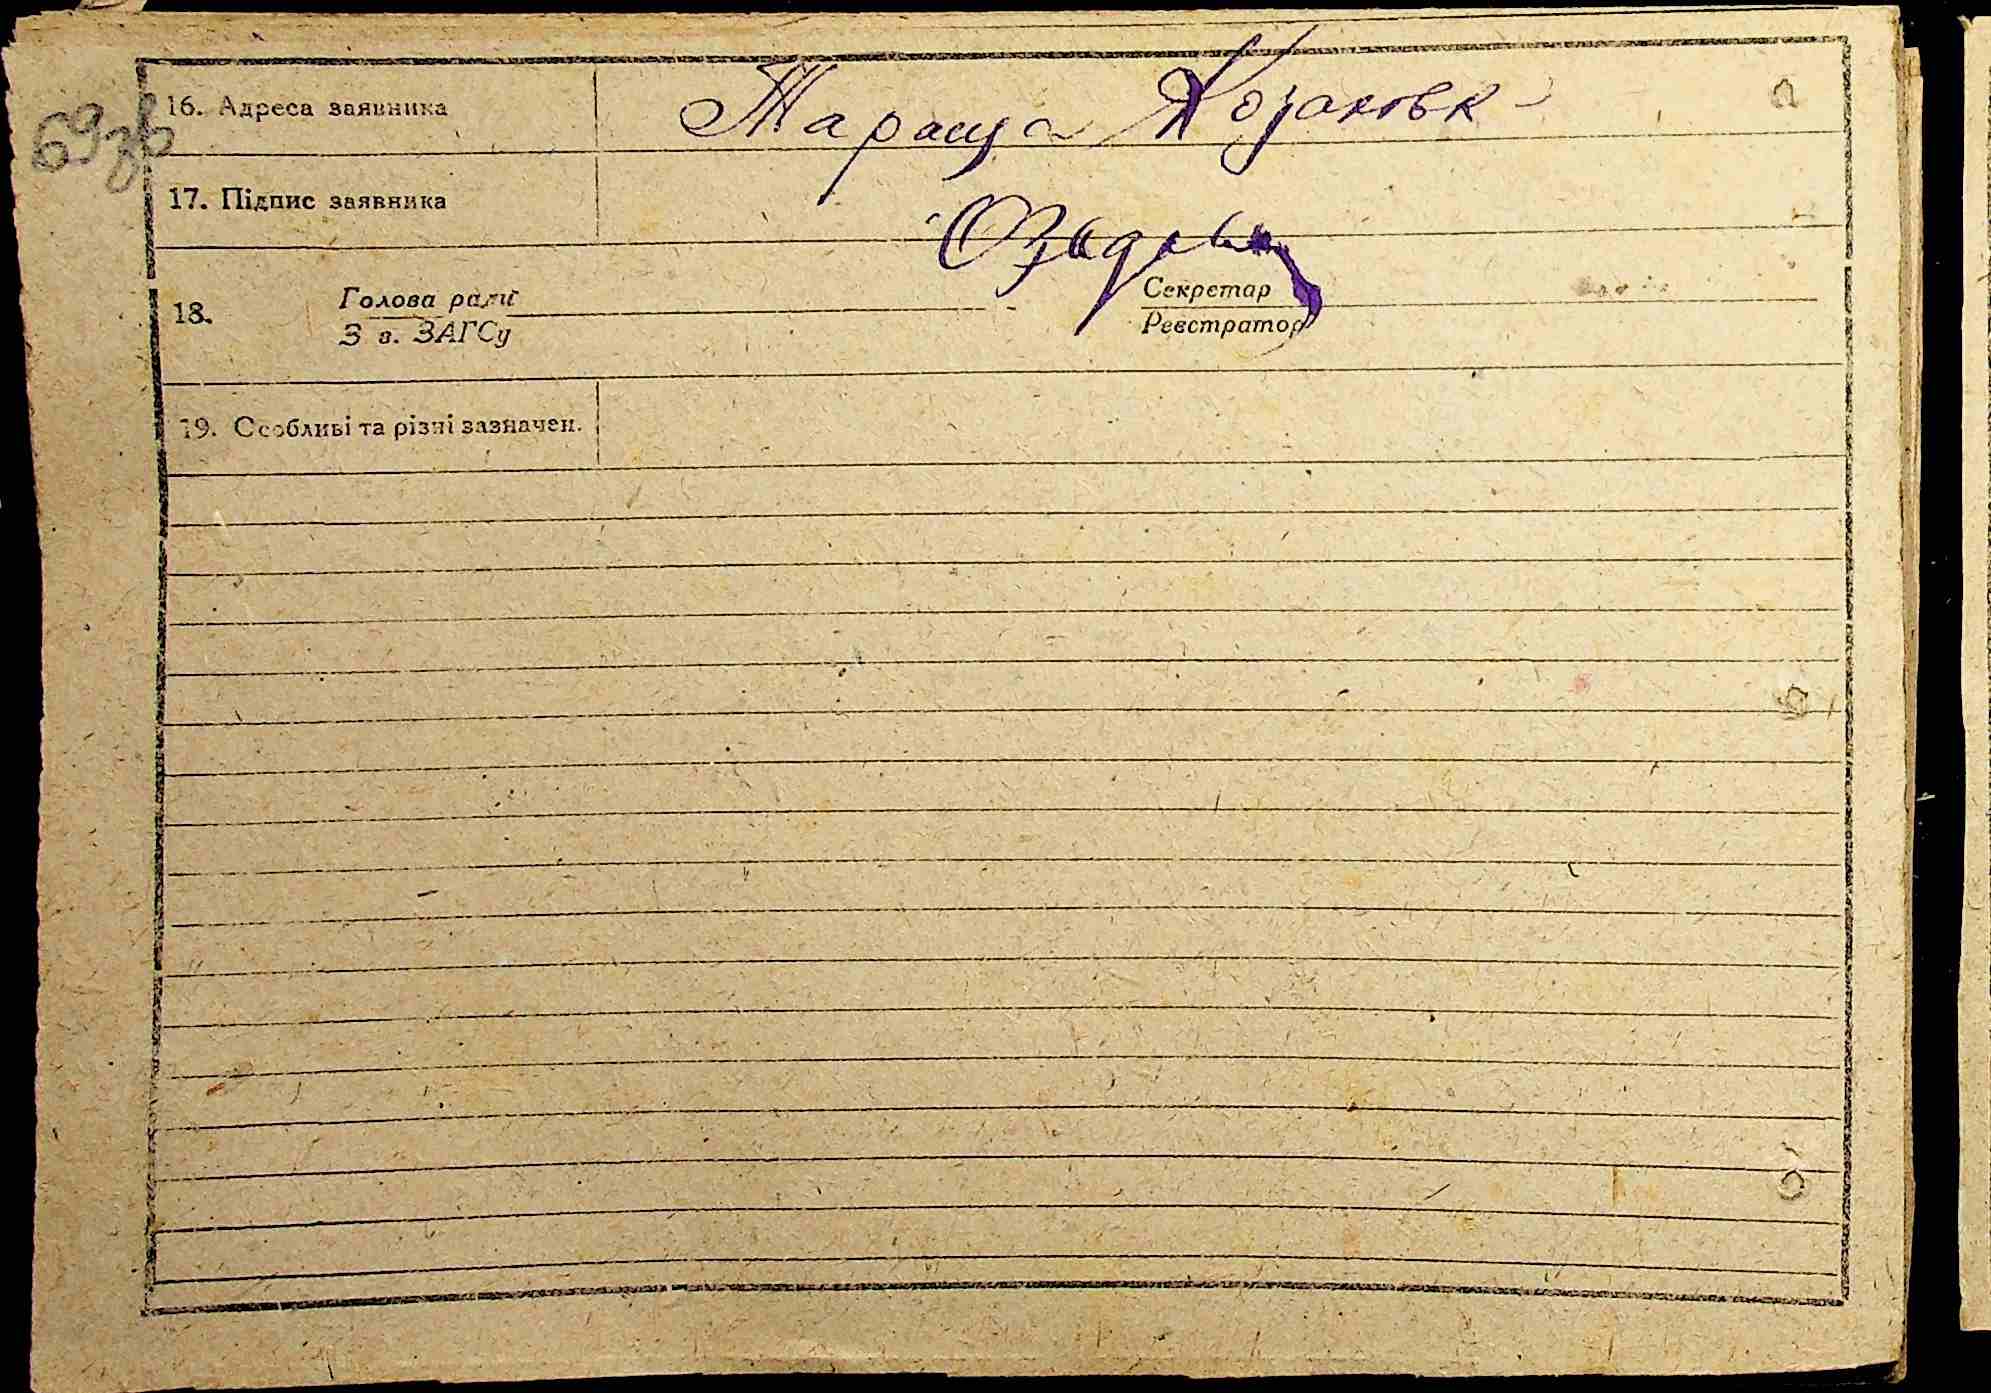 69зв
16. Адреса заявника Тараща
17. Підпис заявника
18. Голова ради Секретар
З в. ЗАГСу Реєстратор
19. Особливі та різні зазначен.